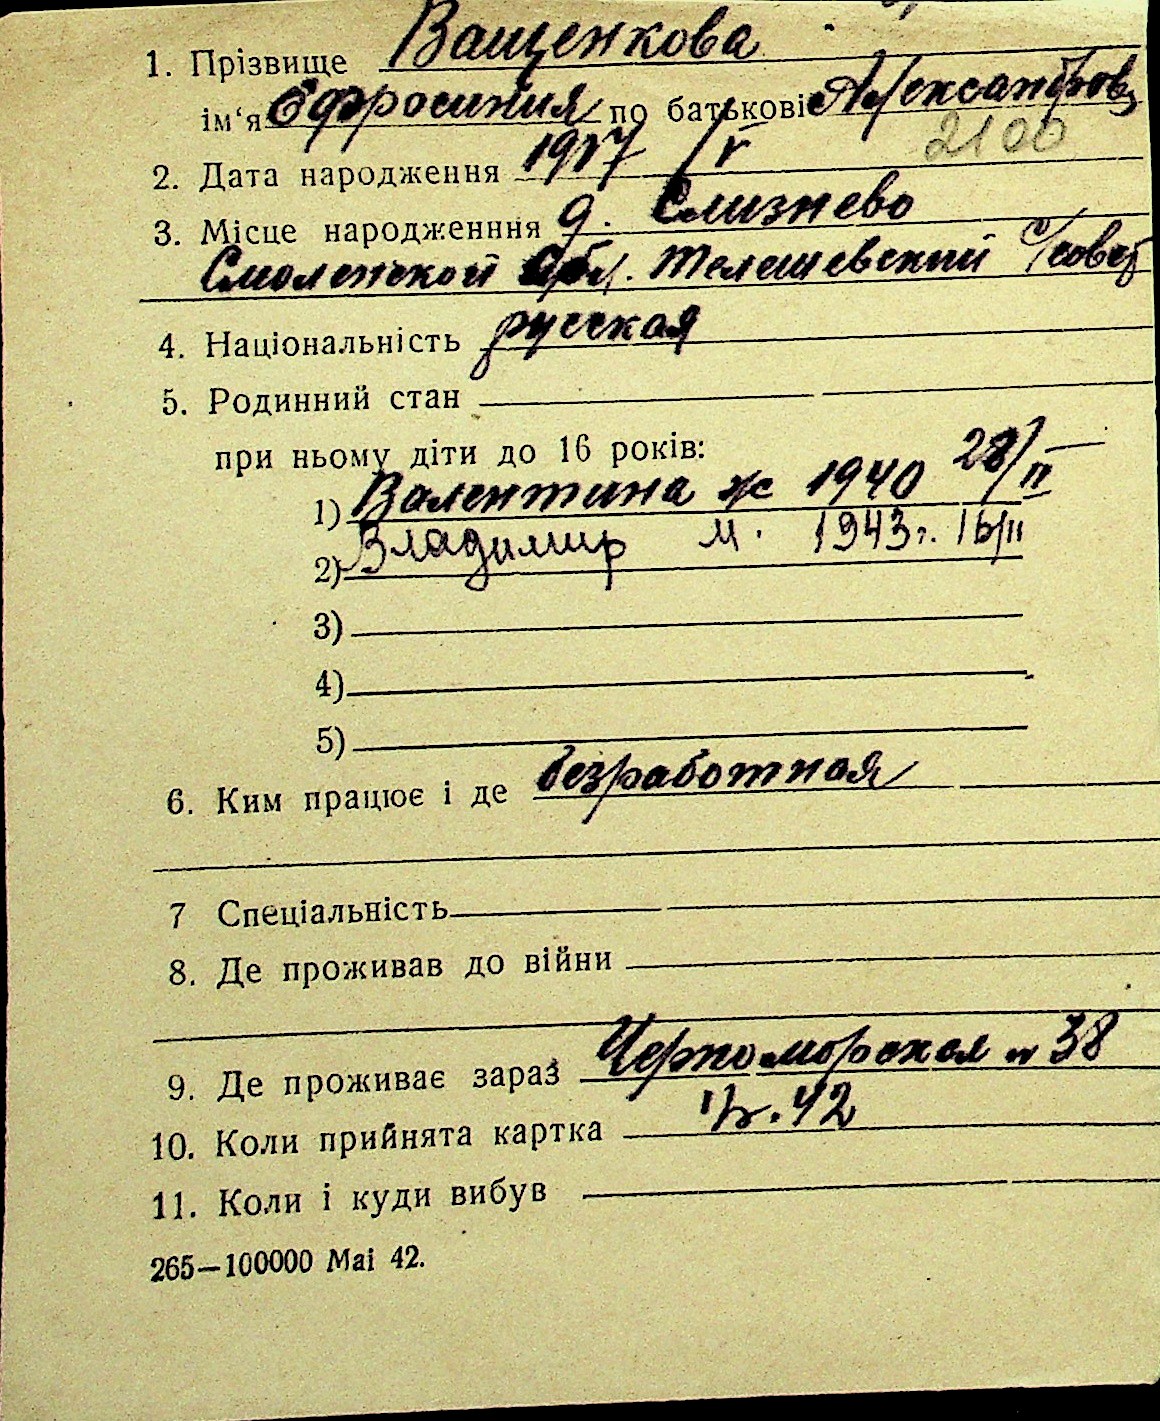 1. Прізвище Ващенкова
ім‘я Ефросиния по батькові Александровн
2100
2. Дата народження 1917 /V
3. Місце народженння д. Слизнево
Смоленской Обл. Телешевский с/совет
4. Національність русская
5. Родинний стан
при ньому діти до 16 років:
1) Валентина ж 1940 28/II
2) Владимир м. 1943 г. 16/II
3)
4)
5)
6. Ким працює і де безработная
7 Спеціальність
8. Де проживав до війни
9. Де проживає зараз Черноморская 38
10. Коли прийнята картка 42
11. Коли і куди вибув
265—100000 Mai 42.